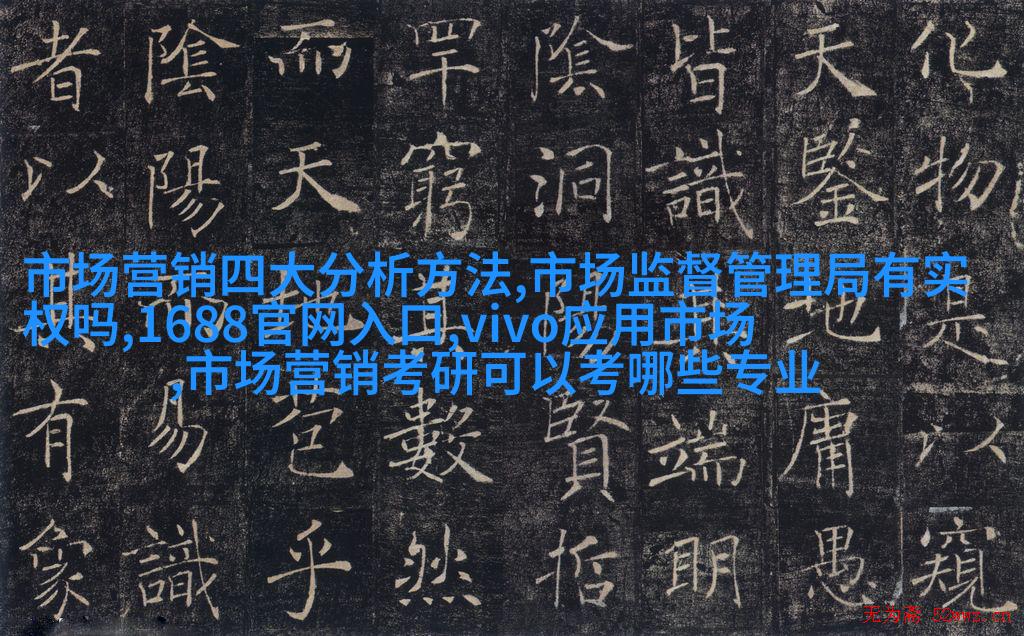 化物是以窺
天鑒地庸愚
皆識其端明
陰洞陽賢哲
罕窮其數然
而天地苞乎
陰陽而易識
者以其有象
市场营销四大分析方法,市场监督管理局有实
权吗,1688官网入口,vivo应用市场
,市场营销考研可以考哪些专业
无为斋 52wwz.cn